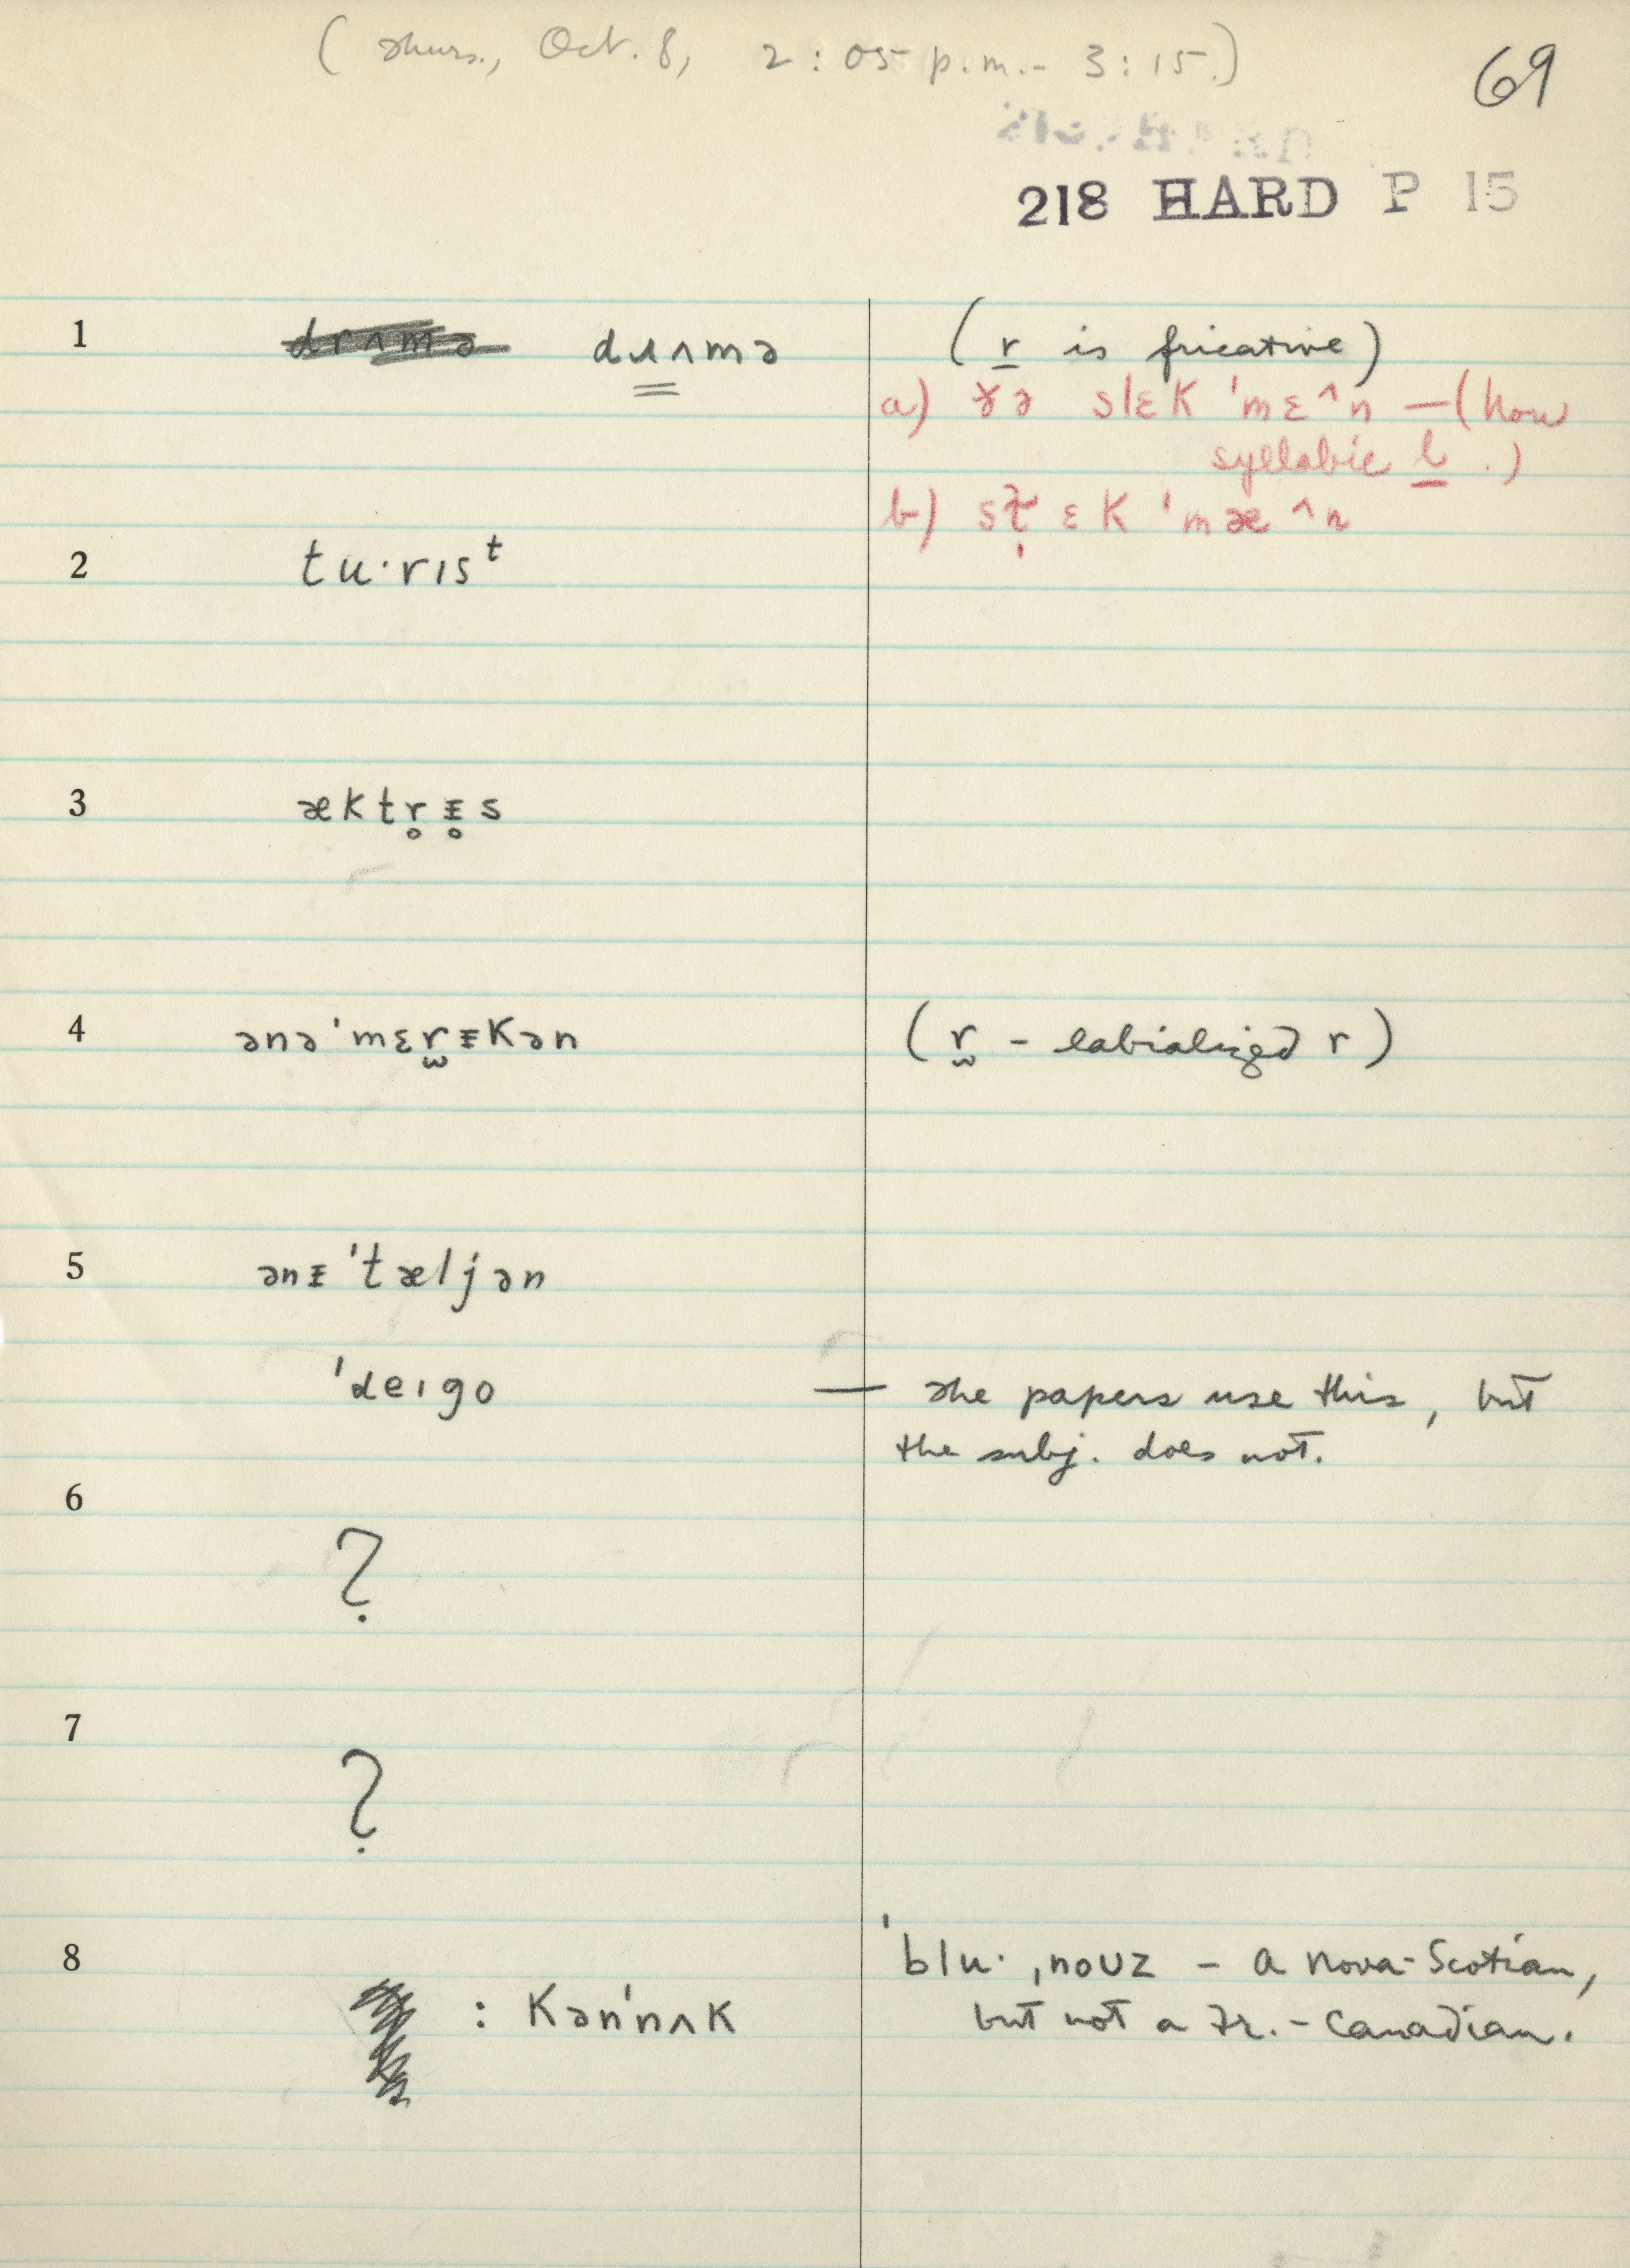 (Thurs., Oct. 8, 2:05 p.m.- 3:15.)
69
218 HARD P 15
1 drʌmə dɹʌmə (r is fricative)
a) ɤə slɛK 'mɛ^n —(how
syllabic l.)
b) sɫ̩ɛK 'mæ^n
2 tu·rısᵗ
3 æktr̥ᵻ̥s
4 ənə'mɛr̫ᵻKən (r̫ - labialized r)
5 ənᵻ'tæljən
'deıgo — The papers use this, but
the subj. does not.
6
?
7
?
8 'blu· ˌnoʊz - a Nova-Scotian,
: Kən'nʌK but not a Fr.-Canadian.